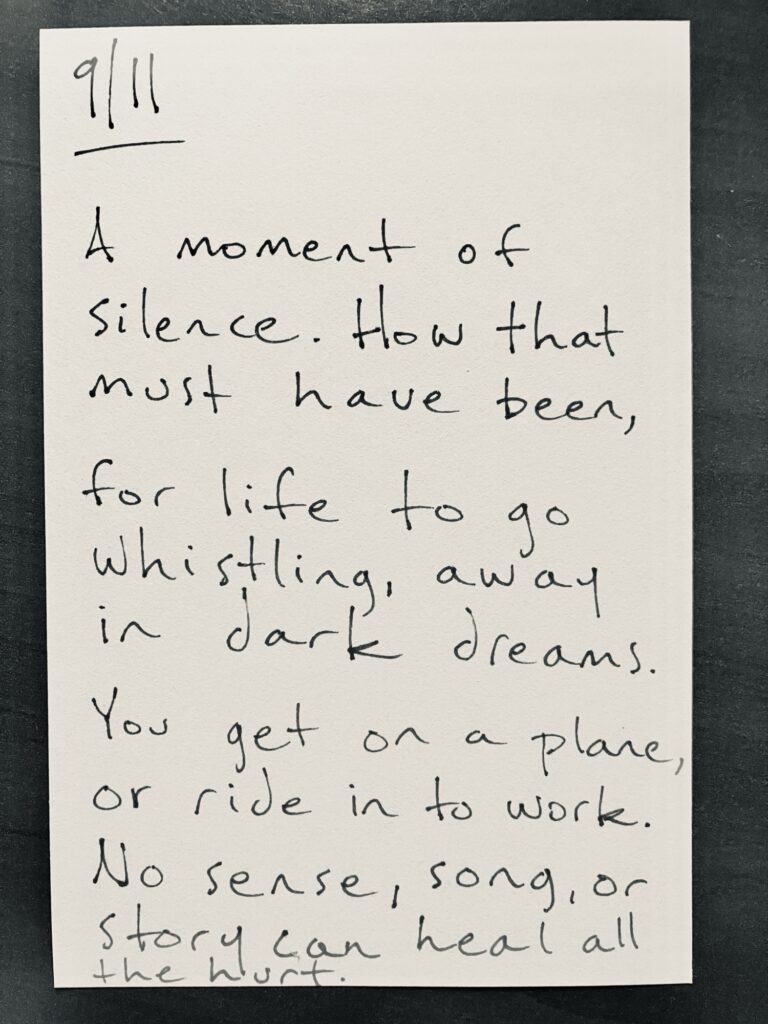 9/11
A moment of
silence. How that
must have been,
for life to go
whistling, away
in dark dreams.
You get on a plane,
or ride in to work.
No sense, song, or
story can heal all
the hurt.